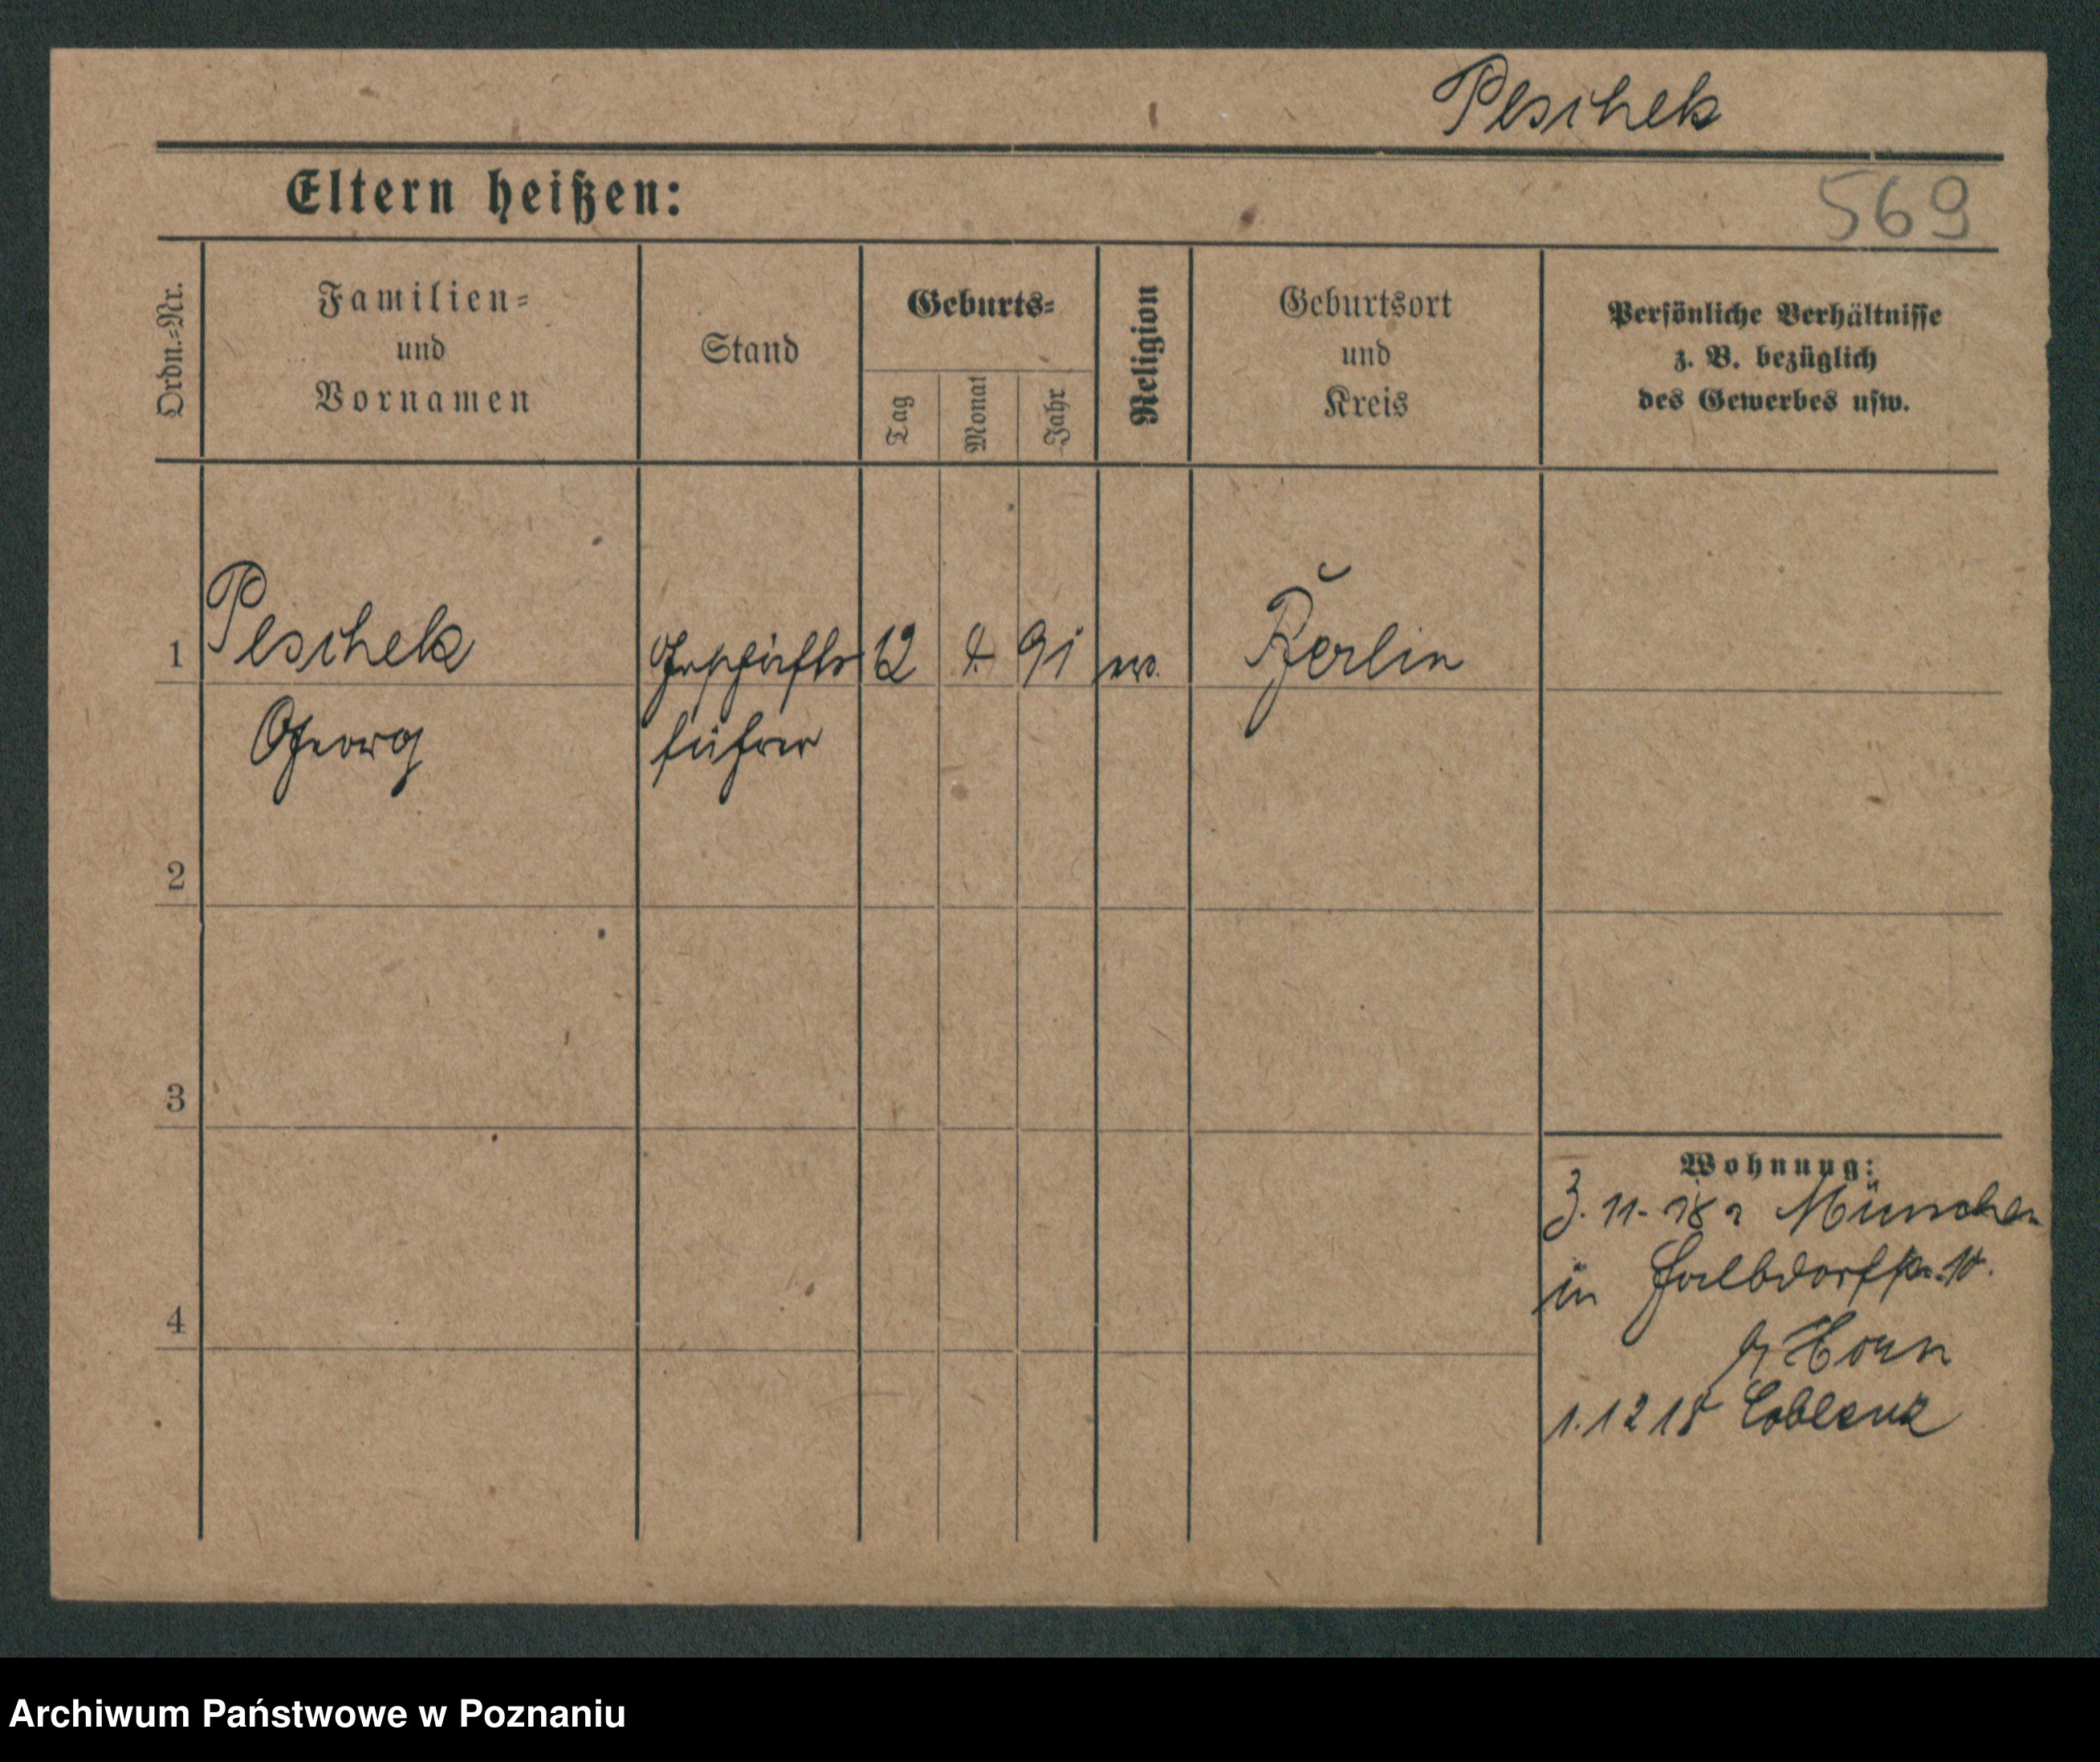 Peschek
Eltern heißen:
569
Ordn.-Nr.
Familien-
und
Vornamen
Stand
Geburts-
Tag
Monat
Jahr
Religion
Geburtsort
und
Kreis
Persönliche Verhältnisse
z. B. bezüglich
des Gewerbes usw.
1 Peschek Geschäfts 12 91 Berlin
Georg führer
2
3
4
Wohnung:
3. 11. 18 München
in
Horn
1. 12 18 Coblenz
Archiwum Państwowe w Poznaniu